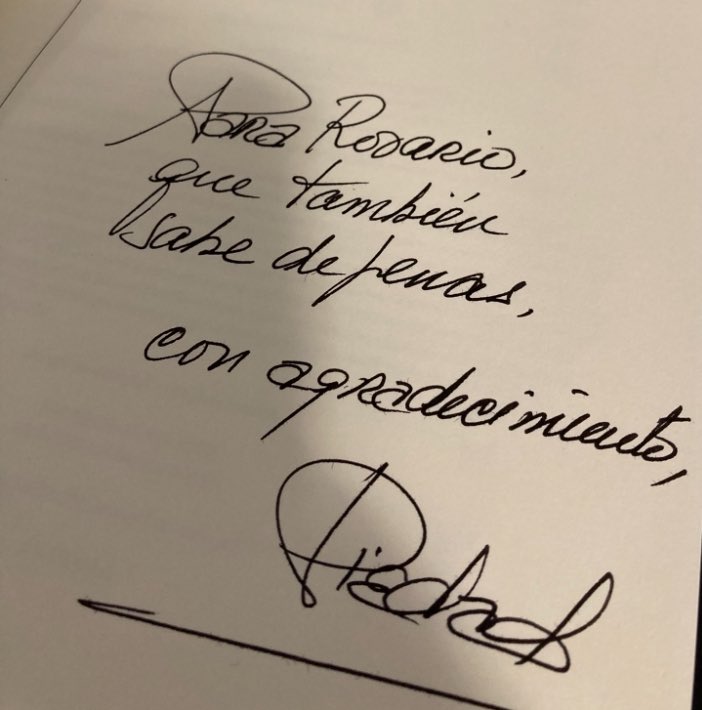 Para Rosario,
que también
sabe de penas,
con agradecimiento,
Piedad